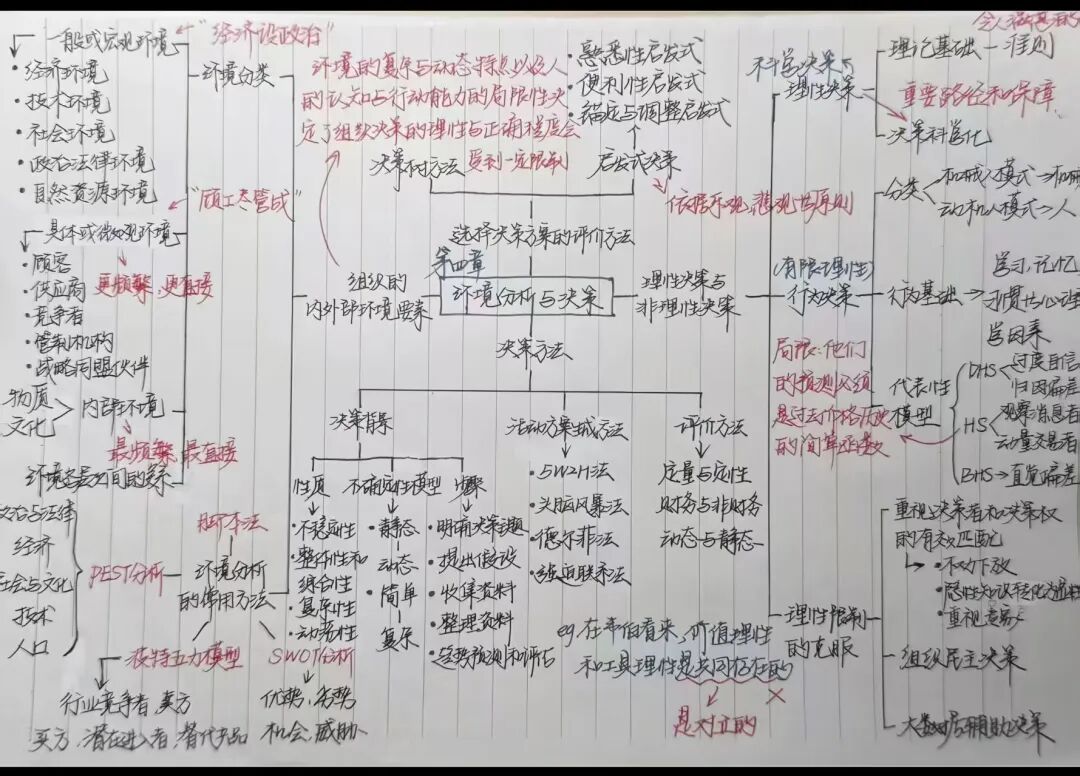 一般或宏观环境
"经济设政治"
·经济环境
·技术环境
·社会环境
·政治法律环境
·自然资源环境
环境分类
"顾工尽管成"
具体或微观环境
更频繁,更直接
·顾客
·供应商
·竞争者
·管制机构
·战略同盟伙伴
物质
文化
内部环境
最频繁,最直接
环境各层之间的关系
政治与法律
经济
社会与文化
技术
人口
PEST分析
脚本法
环境分析
的常用方法
波特五力模型
行业竞争者,卖方
买方,潜在进入者,替代产品
SWOT分析
优势,劣势
机会,威胁
环境的复杂与动态特点以及人
的认知与行动能力的局限性决
定了组织决策的理性与正确程度会
受到一定限制
组织的
内外部环境要素
第四章
环境分析与决策
决策树方法
启发式决策
·熟悉性启发式
·便利性启发式
·锚定与调整启发式
依据乐观,悲观
原则
选择决策方案的评价方法
理性决策与
非理性决策
决策方法
决策背景
性质
·不稳定性
·整体性和
综合性
·复杂性
·动荡性
不确定性模型
·静态
·动态
·简单
·复杂
步骤
·明确决策主题
·提出假设
·收集资料
·整理资料
·趋势预测和评估
活动方案生成方法
·5W2H法
·头脑风暴法
·德尔菲法
·强迫联系法
评价方法
定量与定性
财务与非财务
动态与静态
eg.在韦伯看来,价值理性
和工具理性是共同存在的
×
是对立的
科学决策
理性决策
理论基础—准则
重要路径和保障
决策科学化
分类
机械人模式→机械
动机人模式→人
(有限理性)
行为决策
行为基础
学习,记忆
习惯,心理
学因素
局限:他们
的预测必须
是过去价格历史
的简单函数
代表性
模型
DHS
过度自信
归因偏差
HS
观察消息者
动量交易者
BHS→直觉偏差
理性限制
的克服
重视决策者和决策权
的有效匹配
·权力下放
·隐性知识转化为通性
·重视竞争
组织民主决策
大数据辅助决策